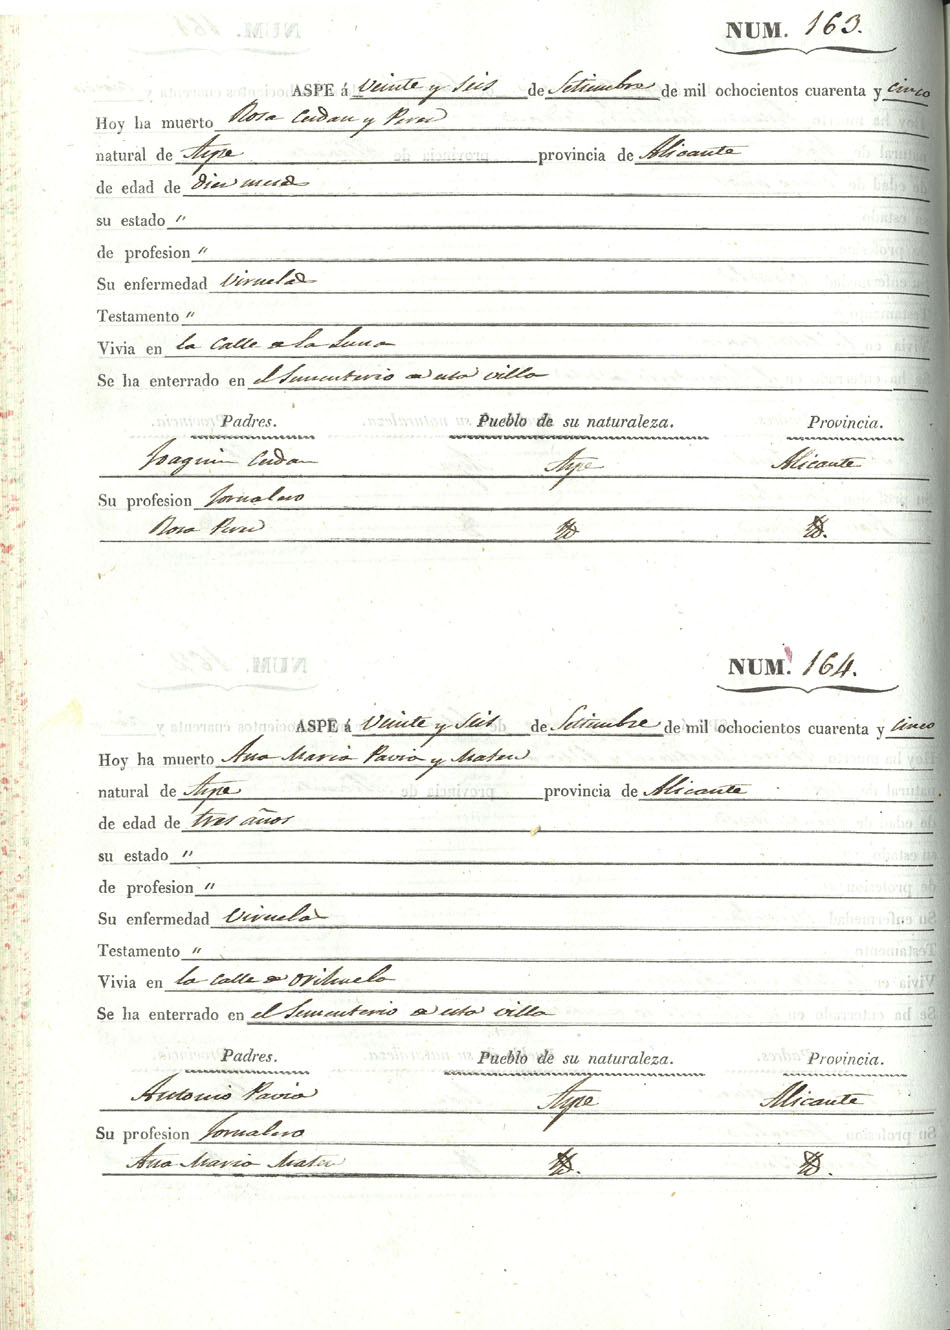 NUM. 163.
ASPE á Veinte y Seis de Setiembre de mil ochocientos cuarenta y cinco
Hoy ha muerto Rosa Cerdan y Perez
natural de Aspe provincia de Alicante
de edad de diez meses
su estado "
de profesion "
Su enfermedad Viruelas
Testamento "
Vivia en la Calle de la Luna
Se ha enterrado en el Sementerio de esta villa
Padres. Pueblo de su naturaleza. Provincia.
Joaquin Cerdan Aspe Alicante
Su profesion Jornalero
Rosa Perez Yd Yd.
NUM. 164.
ASPE á Veinte y Seis de Setiembre de mil ochocientos cuarenta y cinco
Hoy ha muerto Ana Maria Pavia y Mateu
natural de Aspe provincia de Alicante
de edad de tres años
su estado "
de profesion "
Su enfermedad Viruela
Testamento "
Vivia en la Calle de Orihuela
Se ha enterrado en el Sementerio de esta villa
Padres. Pueblo de su naturaleza. Provincia.
Antonio Pavia Aspe Alicante
Su profesion Jornalero
Ana Maria Mateu Yd. Yd.